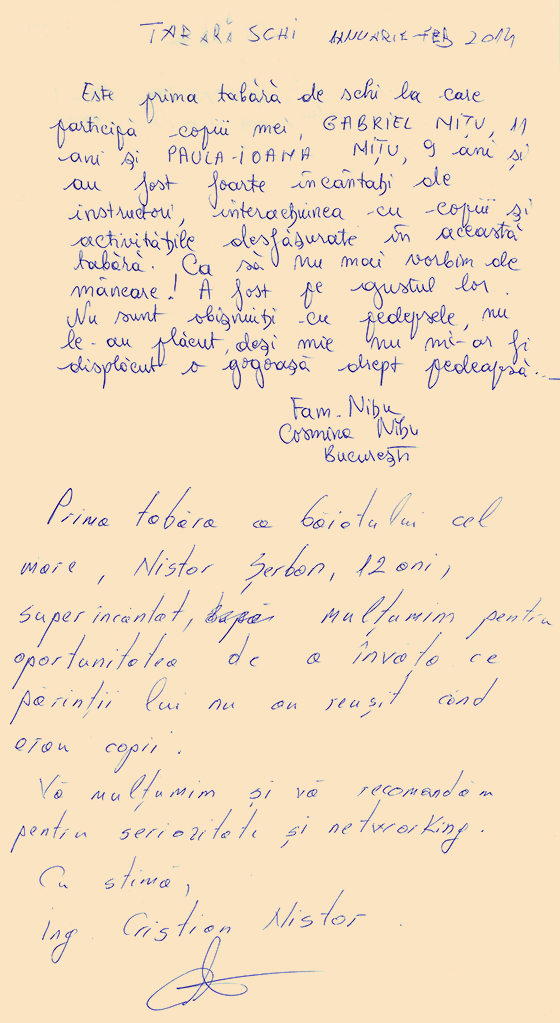 TABĂRĂ SCHI IANUARIE-FEB 2014
Este prima tabără de schi la care
participă copiii mei, GABRIEL NIȚU, 11
ani și PAULA-IOANA NIȚU, 9 ani și
au fost foarte încântați de
instructori, interacțiunea cu copiii și
activitățile desfășurate în această
tabără. Ca să nu mai vorbim de
mâncare! A fost pe gustul lor.
Nu sunt obișnuiți cu pedepsele, nu
le-au plăcut, deși mie nu mi-ar fi
displăcut o gogoașă drept pedeapsă...
Fam. Nițu
Cosmina Nițu
București
Prima tabăra a băiatului cel
mare, Nistor Șerban, 12 ani,
superincantat, mulțumim pentru
oportunitatea de a învăța ce
părinții lui nu au reușit când
erau copii.
Vă mulțumim și vă recomandăm
pentru seriozitate și networking.
Cu stimă,
ing. Cristian Nistor.